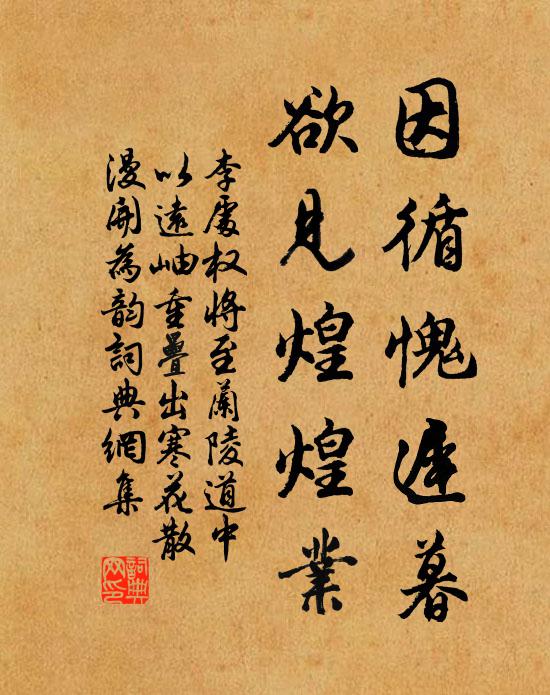 因循愧遲暮
欲見煌煌業
李處权將至蘭陵道中
以遠岫重疊出寒花散
漫開為韵詞典網集
詞典网印